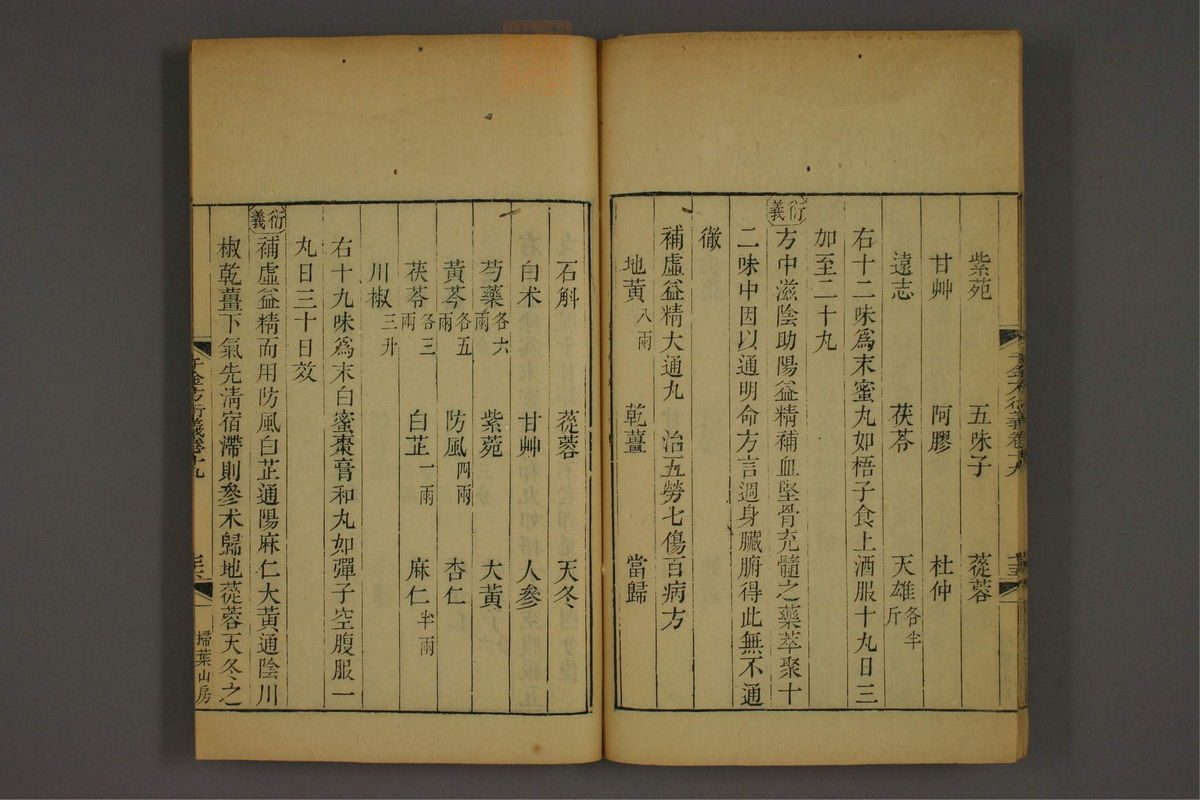 紫苑 五味子 蓯蓉
甘艸 阿膠 杜仲
遠志 茯苓 天雄各半斤
右十二味爲末蜜丸如梧子食上酒服十丸日三
加至二十丸
衍義
方中滋陰助陽益精補血堅骨充髓之藥萃聚十
二味中因以通明命方言週身臟腑得此無不通
徹
補虛益精大通丸 治五勞七傷百病方
地黃八兩 乾薑 當歸
石斛 蓯蓉 天冬
白术 甘艸 人參
芍藥各六兩 紫菀 大黃
黃芩各五兩 防風四兩 杏仁
茯苓各三兩 白芷一兩 麻仁半兩
川椒三升
右十九味爲末白蜜棗膏和丸如彈子空腹服一
丸日三十日效
衍義
補虛益精而用防風白芷通陽麻仁大黃通陰川
椒乾薑下氣先淸宿滯則參术歸地蓯蓉天冬之
千金方衍義卷十九
掃葉山房